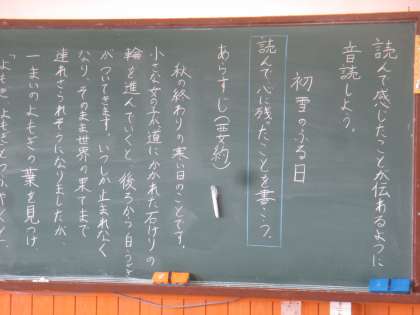 読んで感じたことが伝わるように
音読しよう。
初雪のふる日
読んで心に残ったことを書こう。
あらすじ(要約)
秋の終わりの寒い日のことです。
小さな女の子が道にかかれた石けりの
輪を進んでいくと、後ろから白うさぎ
がついてきます。いつしか止まれなく
なり、そのまま世界の果てまで
連れさられそうになりましたが、
一まいのよもぎの葉を見つけ
「よもぎ、よもぎ